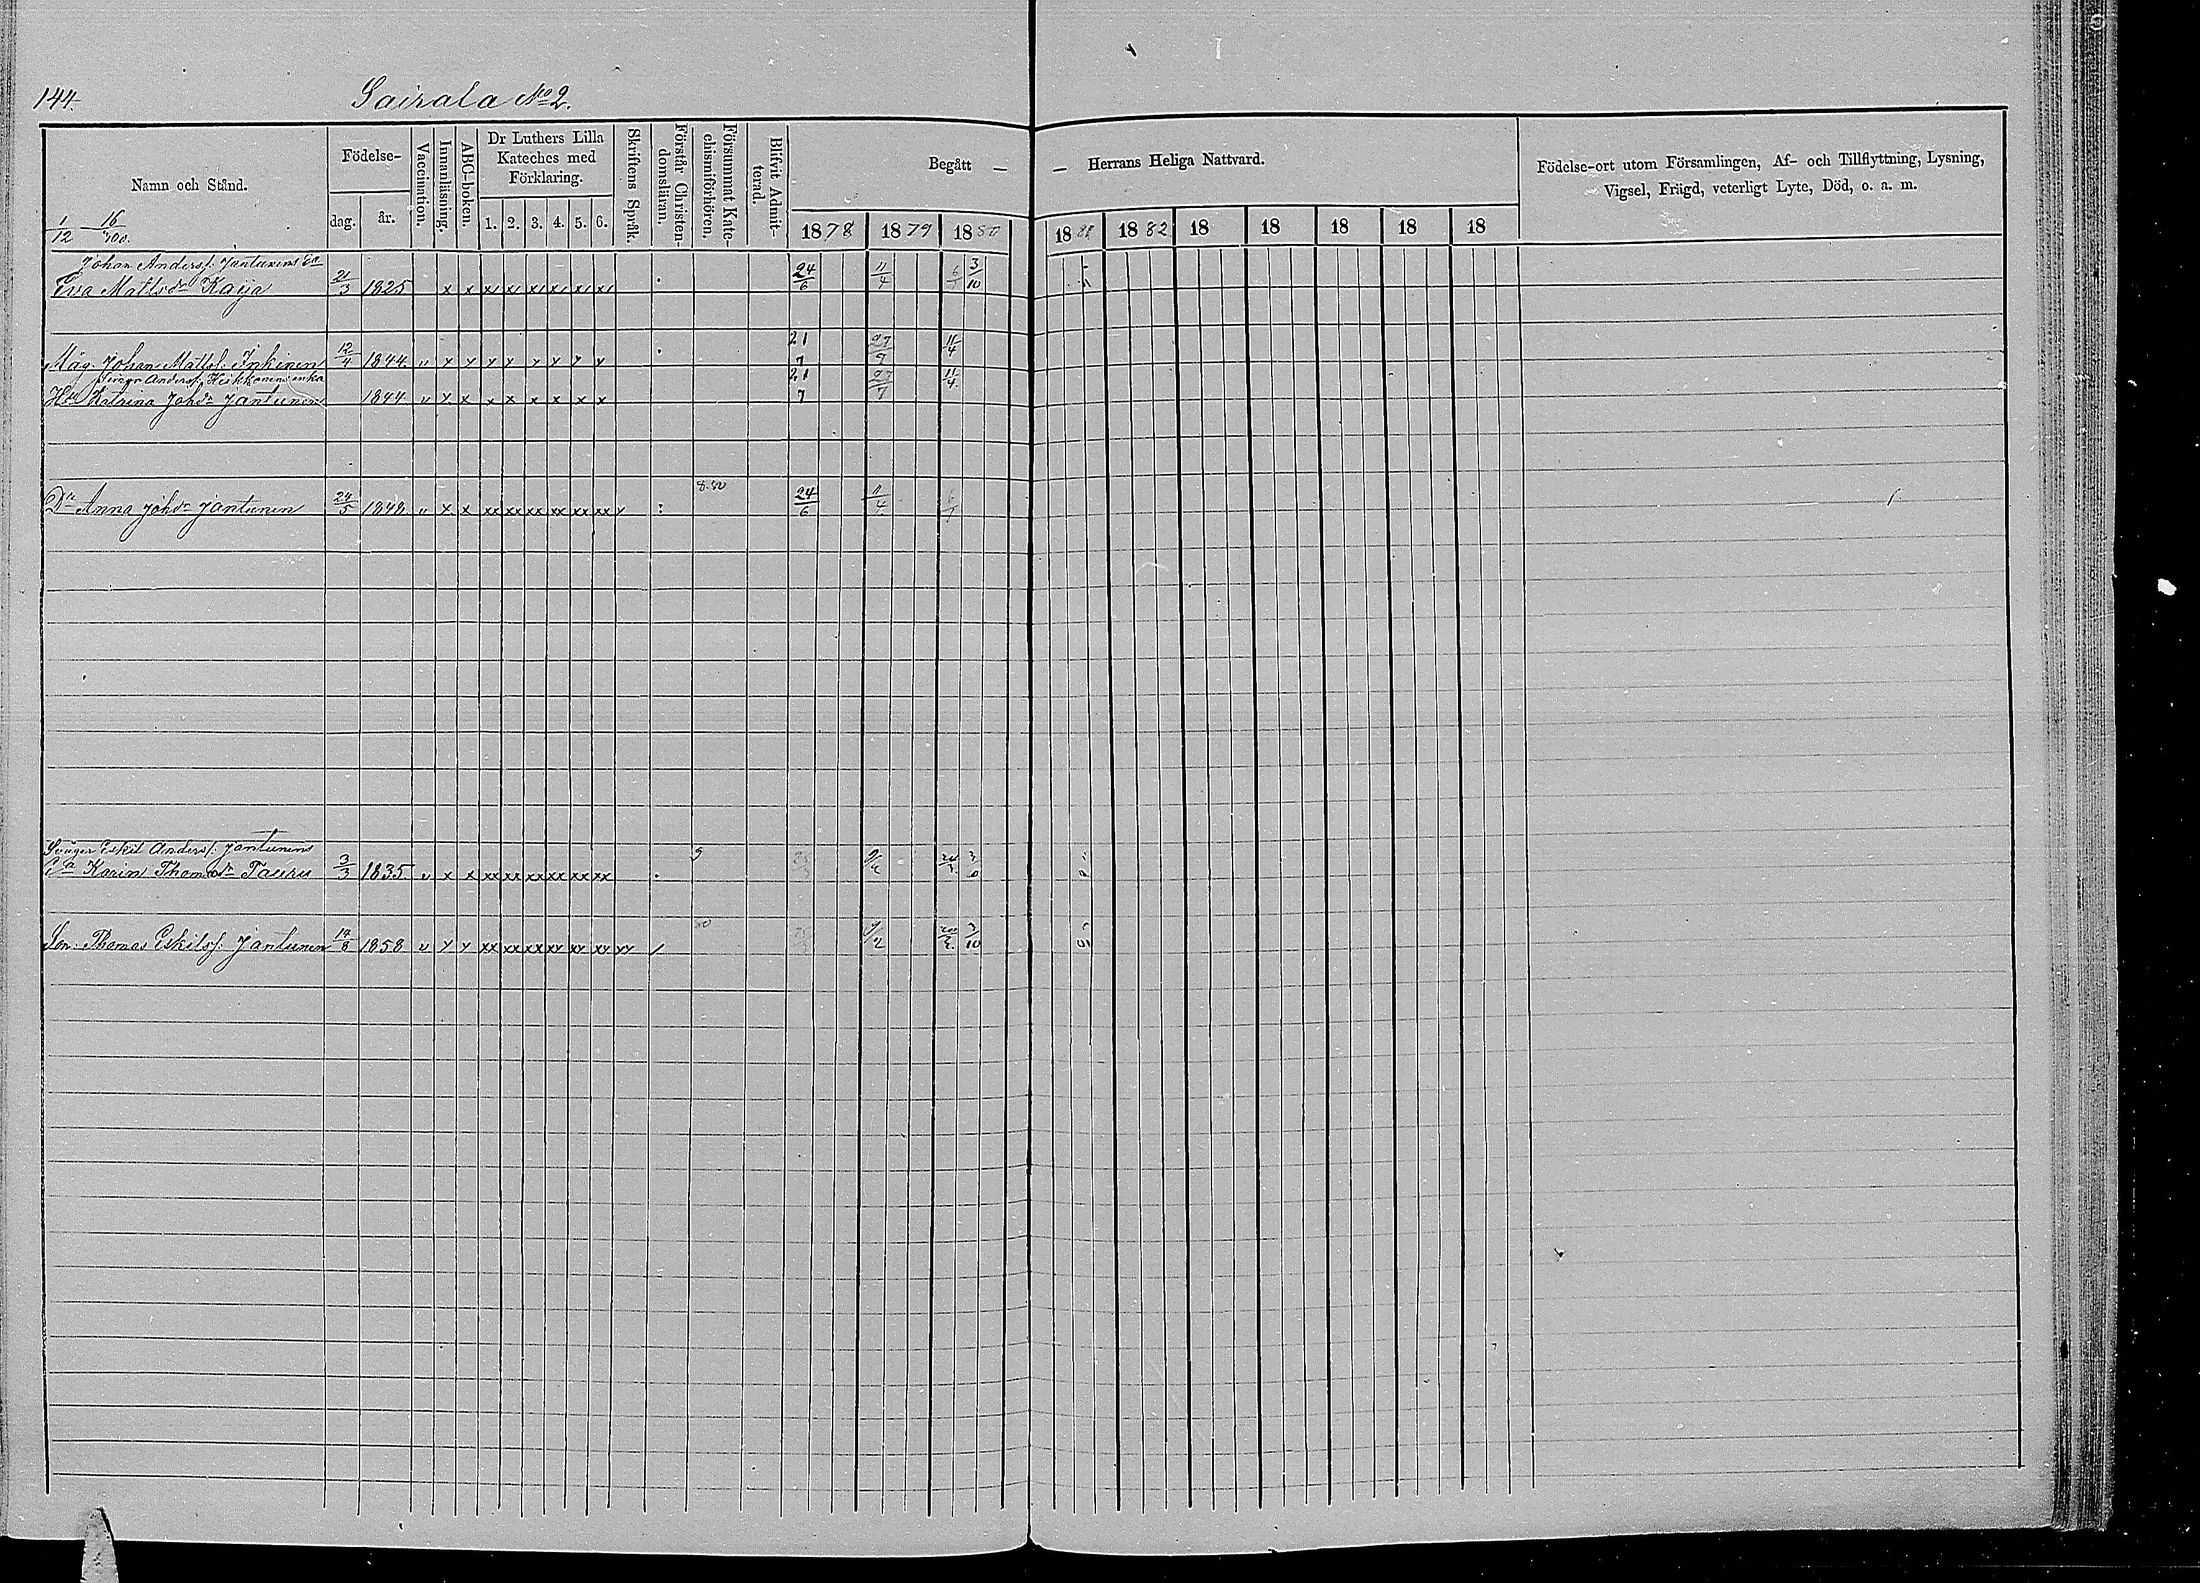 144.
Sairala No 2.
Namn och Stånd.
1/12 16/400.
Födelse-
dag.
år.
Vaccination.
Innanläsning.
ABC-boken.
Dr Luthers Lilla
Kateches med
Förklaring.
1. 2. 3. 4. 5. 6.
Skriftens Språk.
Förstår Christen-
domsläran.
Försummat Kate-
chismiförhören.
Blifvit Admit-
terad.
Begått —
— Herrans Heliga Nattvard.
1878 1879 1880 1882 18 18 18 18 18
Födelse-ort utom Församlingen, Af- och Tillflyttning, Lysning,
Vigsel, Frägd, veterligt Lyte, Död, o. a. m.
Johan Anderss. Jantunens Ea
Eva Mattsdr Kaija 21/3 1825 x x x x x x x x 24/6 11/4 6/1 3/10
Måg. Johan Mattss. Inkinen 12/4 1844 " x x x x x x x x 21/7 27/9 11/4
Anderss. Heikkonens enka
Hu Katrina Johdr Jantunen 1844 " x x x x x x x x 21/7 27/7 11/4
Dr Anna Johdr Jantunen 24/5 1848 " x x xx xx xx xx xx xx x : 8.80 24/6 11/4 6/1
Svåger Eskil Anderss. Jantunens
Ea Karin Thomadr Tauru 3/3 1835 " x x xx xx xx xx xx xx . 9
Son. Thomas Eskilss. Jantunen 14/8 1858 " x x xx xx xx xx xx xx xx / 80 9/2 3/10